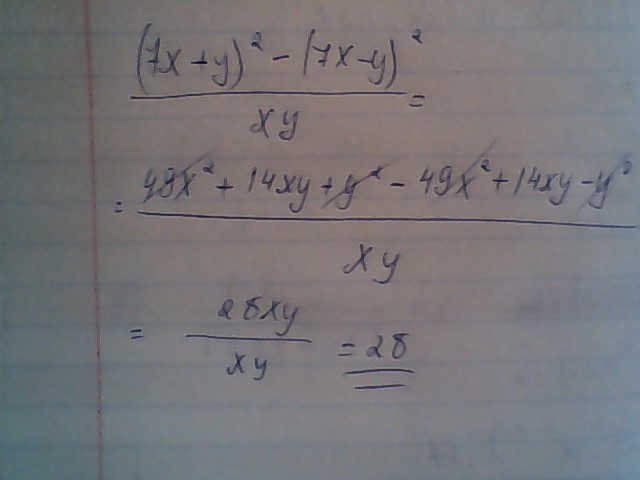 (7x+y)² - (7x-y)²
xy
=
= 49x² + 14xy + y² - 49x² + 14xy - y²
xy
= 28xy
xy
= 28